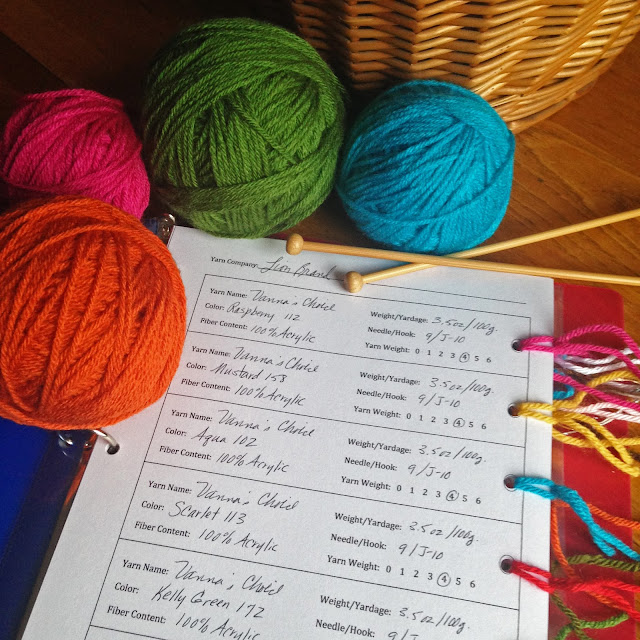 Yarn Company: Lion Brand
Yarn Name: Vanna's Choice
Weight/Yardage: 3.5oz/100g.
Color: Raspberry 112
Needle/Hook: 9/J-10
Fiber Content: 100% Acrylic
Yarn Weight: 0 1 2 3 4 5 6
Yarn Name: Vanna's Choice
Weight/Yardage: 3.5oz/100g.
Color: Mustard 158
Needle/Hook: 9/J-10
Fiber Content: 100% Acrylic
Yarn Weight: 0 1 2 3 4 5 6
Yarn Name: Vanna's Choice
Weight/Yardage: 3.5oz/100g.
Color: Aqua 102
Needle/Hook: 9/J-10
Fiber Content: 100% Acrylic
Yarn Weight: 0 1 2 3 4 5 6
Yarn Name: Vanna's Choice
Weight/Yardage: 3.5oz/100g.
Color: Scarlet 113
Needle/Hook: 9/J-10
Fiber Content: 100% Acrylic
Yarn Weight: 0 1 2 3 4 5 6
Yarn Name: Vanna's Choice
Weight/Yardage: 3.5oz/100g.
Color: Kelly Green 172
Needle/Hook: 9/J-10
Fiber Content: 100% Acrylic